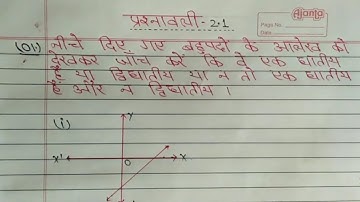 प्रश्नावली-2.1
Ajanta
Page No.
Date
(01.) नीचे दिए गए बहुपदों के आलेख को
देखकर जाँच करें कि वे एक घातीय
हैं या द्विघातीय या न तो एक घातीय
है और न द्विघातीय ।
(i)
Y
X' O X